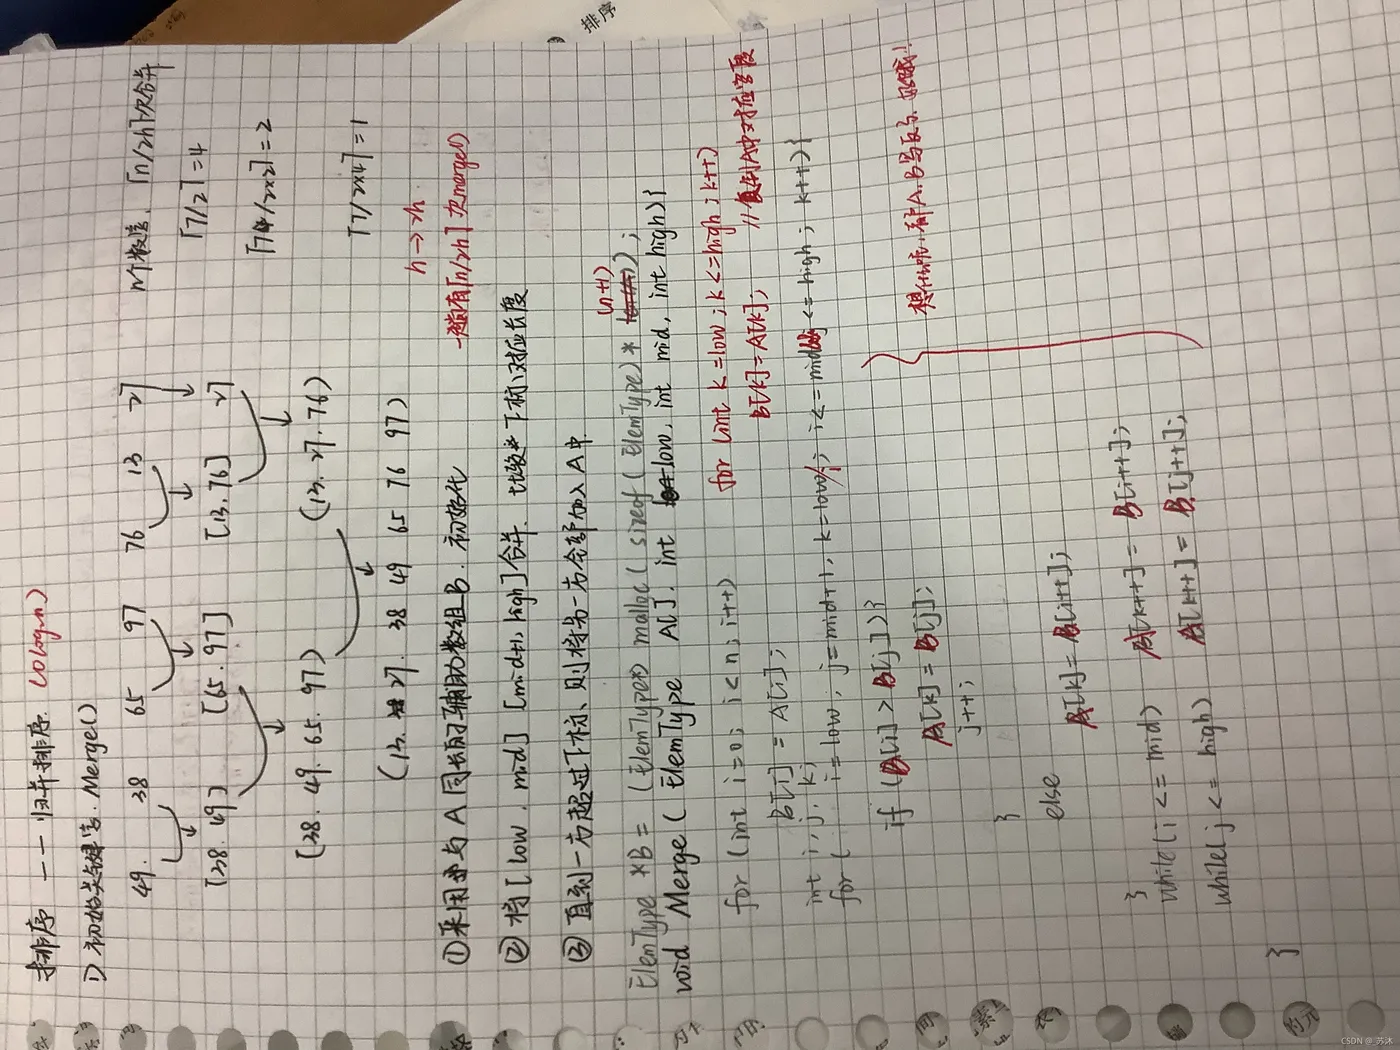 排序
排序 —— 归并排序. (O(log₂n)
1) 初始关键字. Merge()
49. 38 65 97 76 13 27
n个数字, ⌈n/2h⌉次合并
[38. 49] [65. 97] [13. 76] 27
⌈7/2⌉=4
⌈7/2×2⌉=2
[38. 49. 65. 97) (13. 27. 76)
⌈7/2×4⌉=1
(13. 27. 38 49 65 76 97)
h→2h
一趟有⌈n/2h⌉次merge()
①采用与A同长的辅助数组B. 初始化
②将[low, mid] [mid+1, high]合并. 比较下标对应长度
③直到一方超过下标、则将另一方全部加入A中
ElemType *B = (ElemType*) malloc( sizeof( ElemType) * (n+1) ;
void Merge( ElemType A[]. int low, int mid, int high){
for (int i=0; i<n; i++)
for (int k=low; k<=high; k++)
B[i] = A[i];
B[k]=A[k]; //复制A中对应字段
int i, j, k;
for( i=low, j=mid+1, k=low; i<=mid j<=high; k++){
if (B[i] > B[j]){
A[k] = B[j];
j++;
}
else
A[k] = B[i++];
}
while(i <= mid) A[k++] = B[i++];
while(j <= high) A[k++] = B[j++];
}
A.B写反了.
CSDN @_苏沐